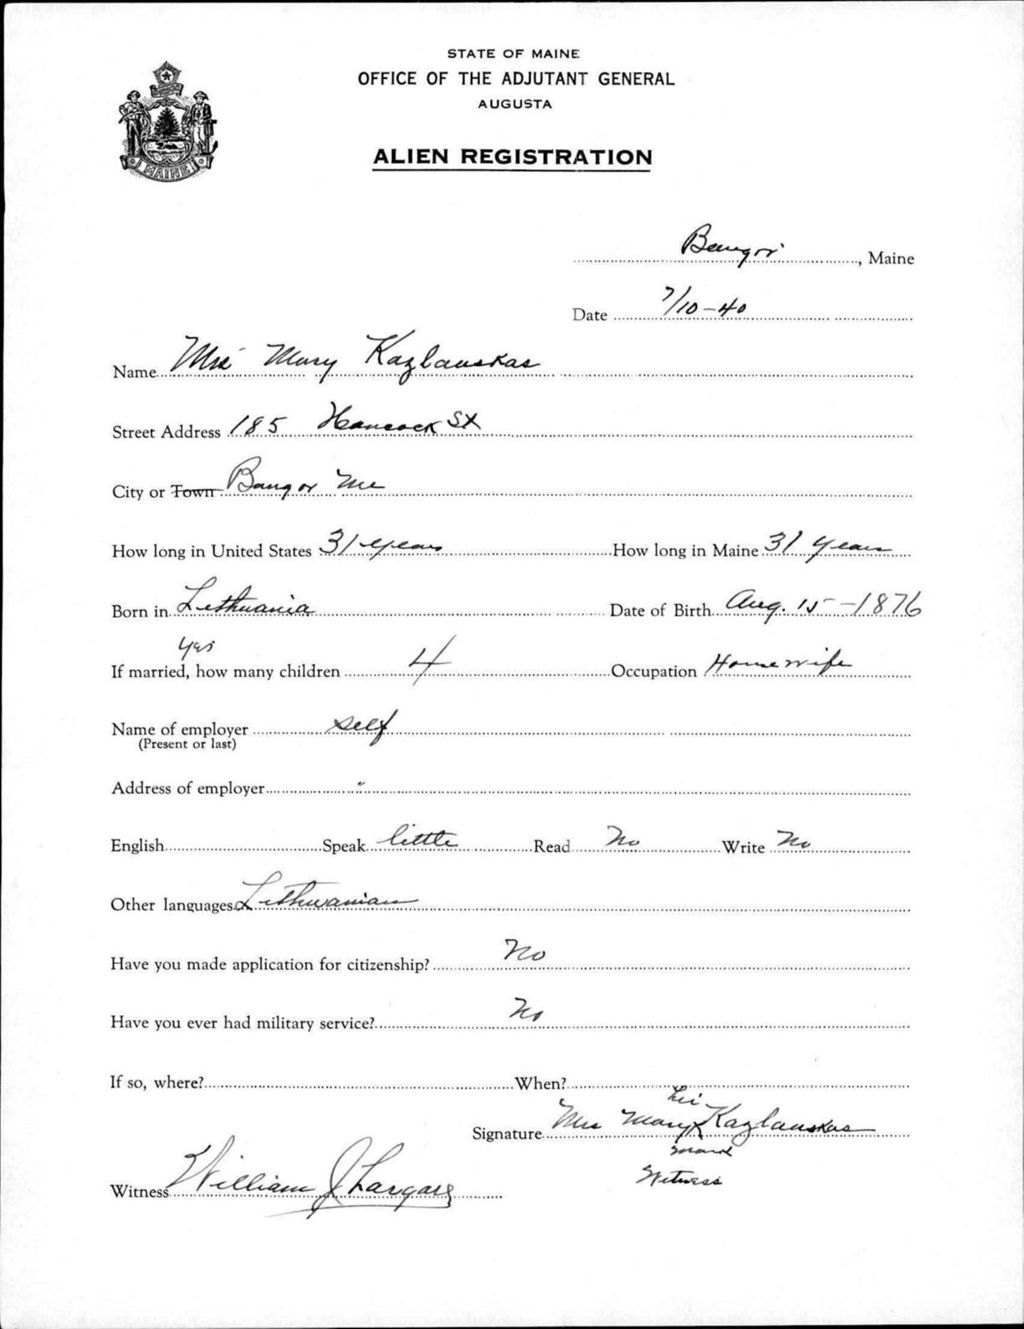 STATE OF MAINE
OFFICE OF THE ADJUTANT GENERAL
AUGUSTA
ALIEN REGISTRATION
MAINE
Bangor, Maine
Date 7/10-40
Name Mrs Mary Kazlauskas
Street Address 185 Hancock St
City or Town Bangor Me
How long in United States 31 years How long in Maine 31 years
Born in Lithuania Date of Birth Aug. 15-1876
yes
If married, how many children 4 Occupation Housewife
Name of employer self
(Present or last)
Address of employer "
English Speak little Read No Write No
Other languages Lithuanian
Have you made application for citizenship? No
Have you ever had military service? No
If so, where? When?
her
Signature Mrs Mary X Kazlauskas
mark
Witness William J Largay Witness